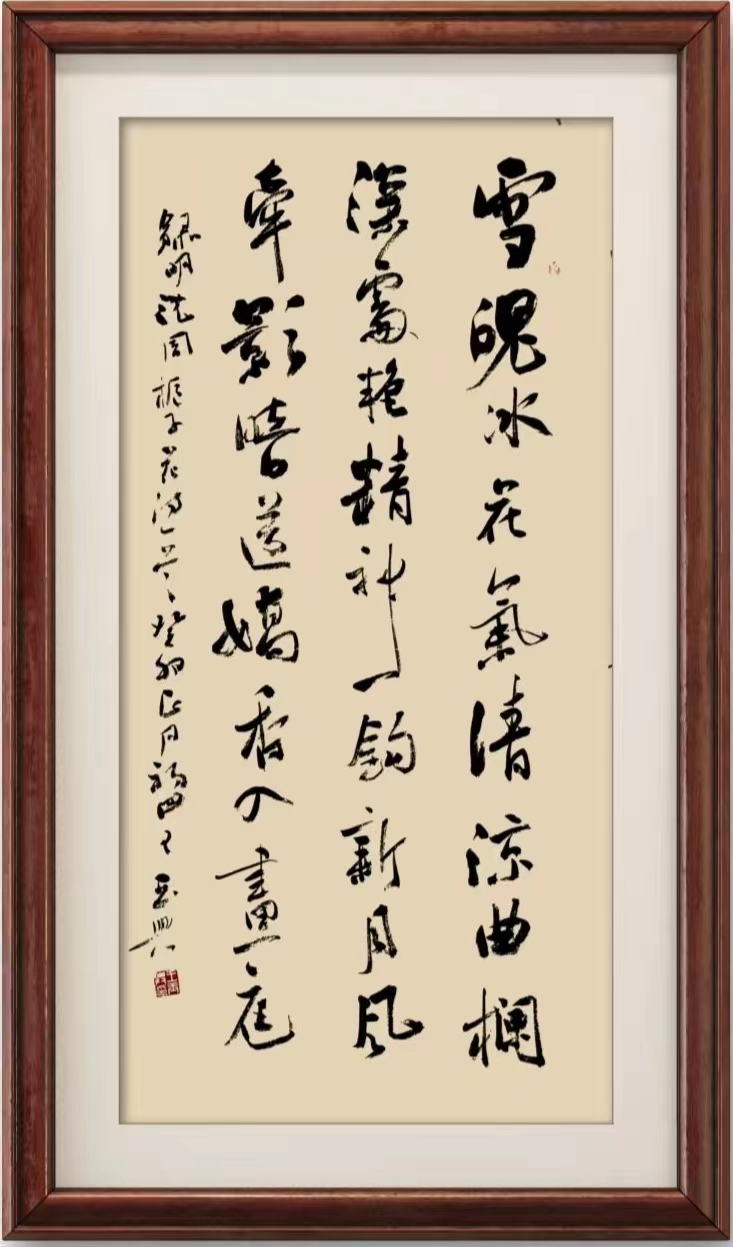 雪魄冰花氣清涼曲欄
深處艳精神一鈎新月風
牽影暗送嬌香入畫庭
錄明沈周栀子花詩一首癸卯正月王玉興